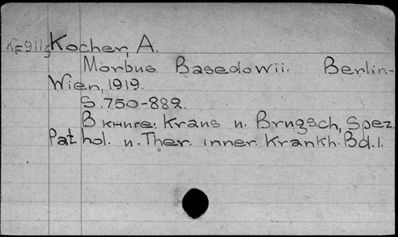 К-911з Kocher, A.
Morbus Basedowii. Berlin-
Wien, 1919.
S. 750-882.
В книге: Kraus u. Brugsch, Spez.
Pathol. u. Ther. inner. Krankh. Bd. 1.